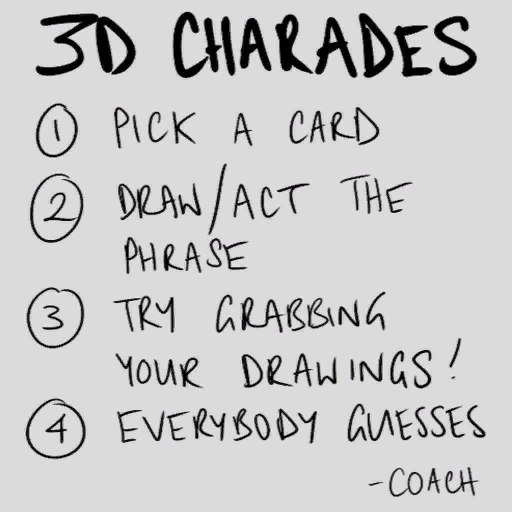 3D CHARADES
1 PICK A CARD
2 DRAW/ACT THE
PHRASE
3 TRY GRABBING
YOUR DRAWINGS!
4 EVERYBODY GUESSES
-COACH